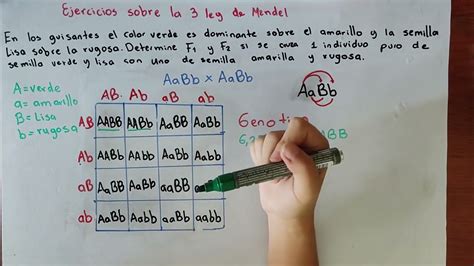 Ejercicios sobre la 3 ley de Mendel
En los guisantes el color verde es dominante sobre el amarillo y la semilla
Lisa sobre la rugosa. Determine F1 y F2 si se cruza 1 individuo puro de
semilla verde y lisa con uno de semilla amarilla y rugosa.
AaBb x AaBb
A=verde
a= amarillo
B= Lisa
b= rugosa
AB Ab aB ab
AB AABB AABb AaBB AaBb
Ab AABb AAbb AaBb Aabb
aB AaBB AaBb aaBB
ab AaBb Aabb aaBb aabb
AaBb
Genoti
BB